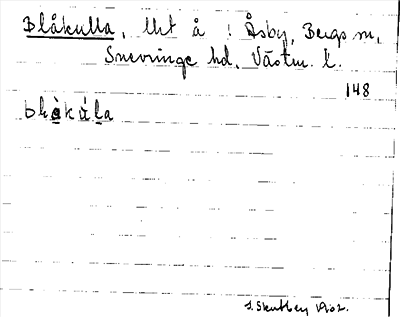 Blåkulla, lht å ! Åsby, Bergs sn,
Snevringe hd, Västm. l.
148
blåkùla
J. Stenberg 1902.